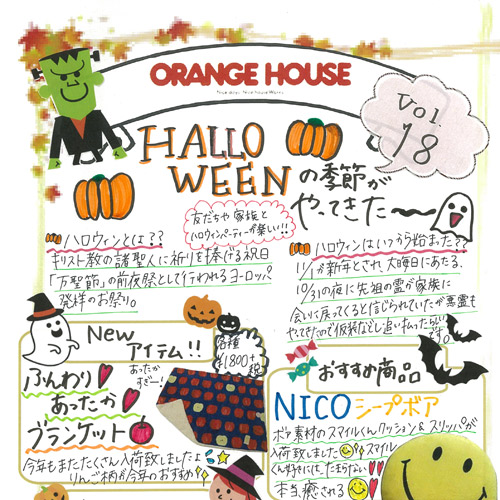 ORANGE HOUSE
Vol.
18
HALLO
WEEN
の季節が
やってきた〜
友だちや家族と
ハロウィンパーティーが楽しい!!
ハロウィンとは??
キリスト教の諸聖人に祈りを捧げる祝日
「万聖節」の前夜祭として行われるヨーロッパ
発祥のお祭り。
ハロウィンはいつから始まった??
11/1が新年とされ、大晦日にあたる
10/31の夜に先祖の霊が家族に
会いに戻ってくると信じられていたが悪霊も
やってきたので仮装などし追い払った
New
アイテム!!
あったか
すぎー!
各種
¥1800+
税
ふんわり
あったか
ブランケット
今年もまたたくさん入荷致しましたよ
りんご柄が今年のおすすめ
おすすめ商品
NICO シープボア
ボア素材のスマイルくんクッション&スリッパが
入荷致しました スマイル
くん好きにはたまらない
本当癒される